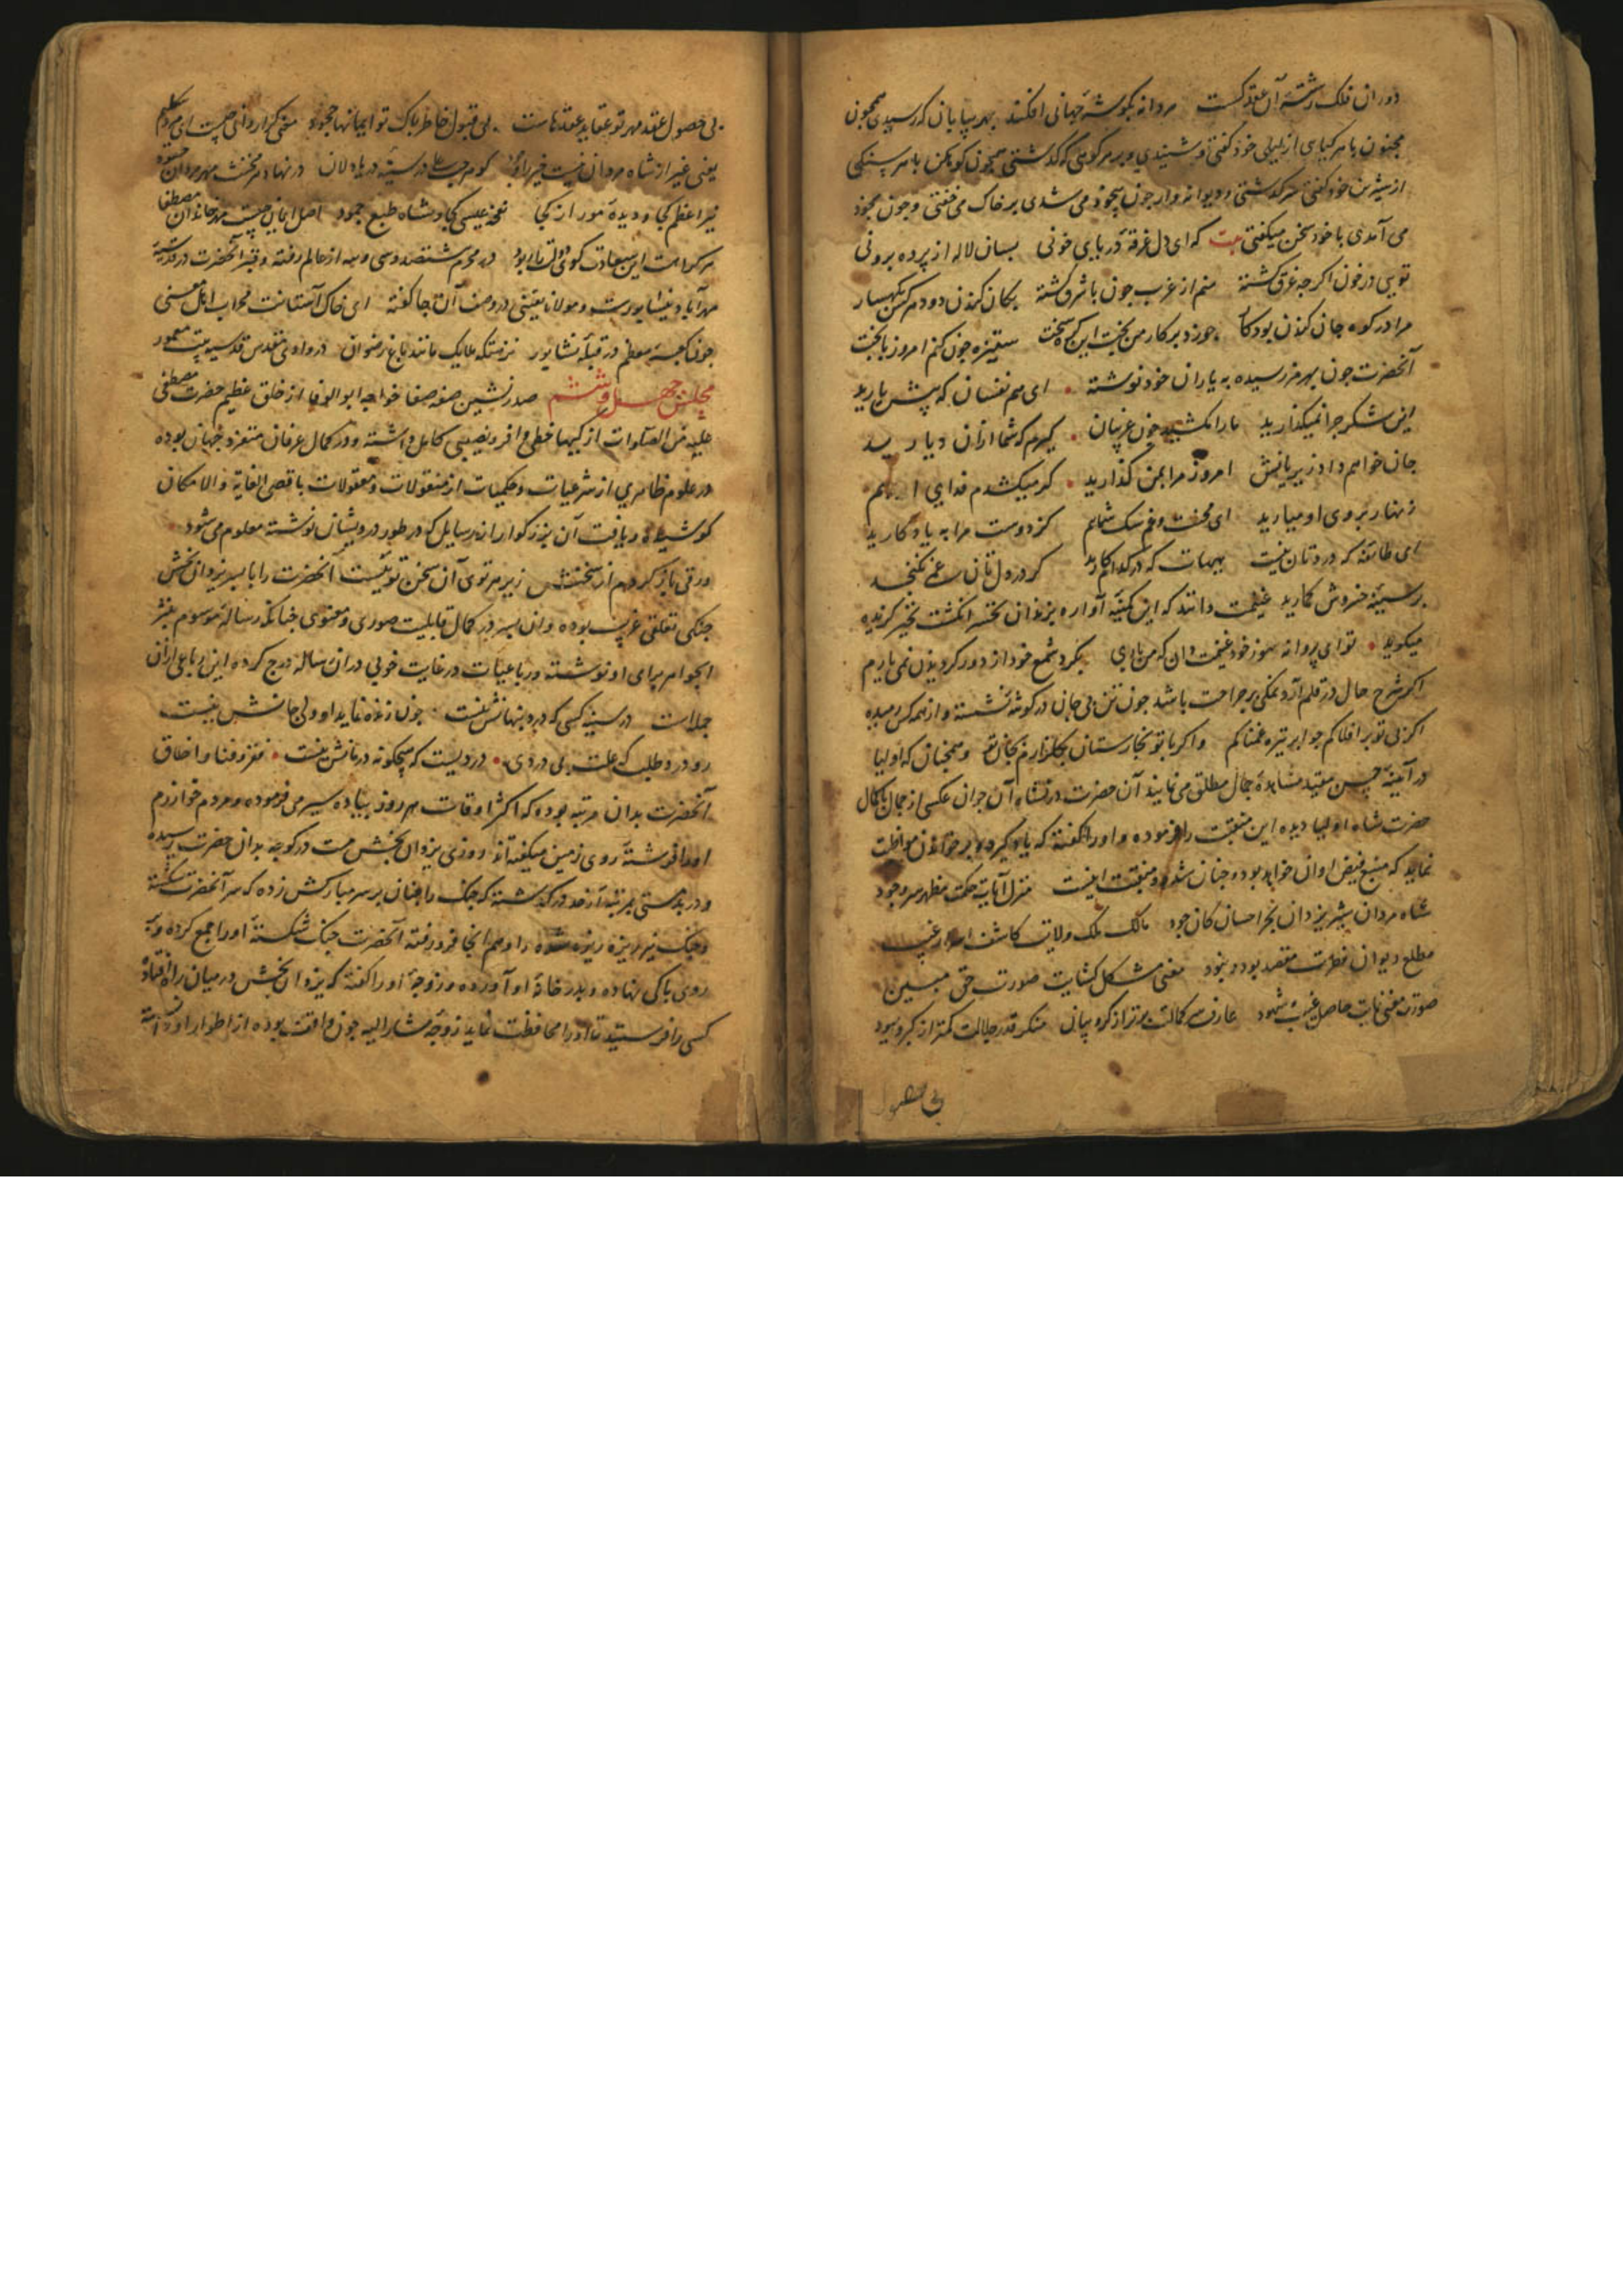 دوران فلک رشتهٔ آن عقد کسست مردانه بکوشهٔ جهانی افکند بهر بیابان که رسیدی همچون
مجنون با هر کیاهی از لیلی خود کفتی و شنیدی و بر هر کوهی که کذشتی همچون کوهکن با هر سنکی
از شیرین خود کفتی سر کذشتی و دیوانه وار چون بیخود می شدی بر خاک می خفتی و چون بخود
می آمدی با خود سخن میکفتی بیت که ای دل غرقهٔ دریای خونی بسان لاله از پرده برونی
تویی در خون اکر چه غرق کشته منم از غرب چون با شرق کشته بکان کندن دو دم کس
مرا در کوه جان کندن بود کار چو زد بر کار من بخت این کره سخت ستیزه چون کنم امروز با بخت
آنحضرت چون بهر مز رسیده به یاران خود نوشته ای هم نفسان که پیش یارید
این شکر چرا نمیکذارید ما را مکشید چون غریبان کیرم که شما ازان دیار ید
جان خواهم داد زیر پایش امروز مرا بمن کذارید کر میکشدم فدای
زنهار بروی او میارید ای محنت و غم سک شمایم کز دوست مرا به یادکارید
ای طائفه که دردتان نیست هیهات که در کدام کارید کر در دل تان غمی نکنجد
بر سینه خروش کمارید غنیمت دانند که این کمینه آواره بدندان تحسر انکشت تحیر کزیده
میکوید تو ای پروانه سوز خود غنیمت دان که من باری بکرد شمع خود از دور کردیدن نمی یارم
اکر شرح حال در قلم آرد نمکی بر جراحت باشد چون تن بی جان در کوشه نشسته و از همه کس رمیده
اکر بی تو بر افلاکم چو ابر تیره غمناکم و اکر با تو بخارستان بکلزارم و همچنان که اولیا
در آینهٔ حسن مقید مشاهدهٔ جمال مطلق می نمایند آن حضرت در نشاه آن جوان عکسی از جمال باکمال
حضرت شاه اولیا دیده این منقبت را فرموده و او را کفته که یاد کیرد و بر خواندن مواظبت
نماید که منبع فیض اوان خواهد بود و چنان شد و منقبت اینست منزل آیات حکمت مظهر سر وجود
شاه مردان شیر یزدان بحر احسان کان جود مالک ملک ولایت کاشف اسرار غیب
مطلع دیوان فطرت مقصد بود و نبود معنی مشکل کشایت صورت حق مبین
صورت معنی نمایت حاصل غیب و شهود عارف کمالت برتر از کروبیان منکر قدر جلالت کمتر از کبر و یهود
بی حصول
بی حصول عقد مهر تو عقاید عقدهاست بی قبول خاطر پاک تو ایمانها جحود
یعنی غیر از شاه مردان نیست در سینهٔ دریا دلان در نهاد هر مخنث مهر مردان
نیر اعظم کجا و دیدهٔ موران کجا نفحه عیسی کجا و شاه طبع جمود اصل ایمان چیست مهر خاندان مصطفا
هر کرا هست این سعادت کوی دولت را ربود در محرم ششصد و سی و سه از عالم رفته و قبر آنحضرت در
مهرآباد نیشابورست و مولانا یقینی در وصف آن جا کفته ای خاک آستانت محراب اهل معنی
چون کعبه معظم در قبلهٔ نشابور نزهتکه ملایک مانند باغ رضوان در وادی مقدس قدسیه بیت معمور
مجلس چهل و ششم صدر نشین صفه صفا خواجه ابو الوفا از خلق عظیم حضرت مصطفی
علیه من الصلوات ازکیها حظی وافر و نصیبی کامل داشته و در کمال عرفان متفرد جهان بوده
در علوم ظاهری از شرعیات و حکمیات از منقولات و معقولات باقصی الغایة والامکان
کوشیده دریافت آن بزرکوار از رسایل که در طور درویشان نوشته معلوم می شود
ورقی باز کردم از سخنش زیر هر توی آن سخن توئیست آنحضرت را با پسر یزدان بخش
چنکی تعلقی غریب بوده و ان پسر در کمال قابلیت صوری و معنوی چنانکه رساله موسوم بنثر
الجواهر برای او نوشته و رباعیات در غایت خوبی دران رساله درج کرده این رباعی ازان
جمله است در سینهٔ کسی که درد پنهانش نیست چون زنده نماید او ولی جانش نیست
رو درد طلب که علت بی دردی دردیست که هیچکونه درمانش نیست فقر و فنا و اخلاق
آنحضرت بدان مرتبه بوده که اکثر اوقات هر روز پیاده سیر می فرموده و مردم خوارزم
او را فرشتهٔ روی زمین میکفته اند روزی یزدان بخش مست در کوچه بدان حضرت رسیده
و در بدمستی بمرتبه از خود در کذشته که چنک را چنان بر سر مبارکش زده که سر آنحضرت شکسته
و چنک نیز ریزه ریزه شده و او هم انجا فرو رفته آنحضرت چنک شکستهٔ او را جمع کرده و به
روی پاکی نهاده و بدر خانهٔ او آورده و زوجهٔ او را کفته که یزدان بخش در میان راه افتاده
کسی را فرستید تا او را محافظت نماید زوجهٔ مشار الیه چون واقف بوده از اطوار او دانسته